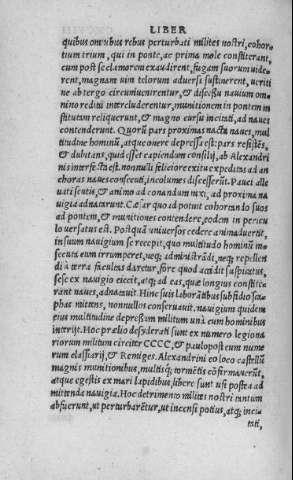 LIBER
quibus omnibus rebus perturbati milites nostri, cohor-
tium trium, quæ in ponte, ac prima mole constiterant,
cum post se clamorem exaudirent, fugam suorum vide-
rent, magnam vim telorum adversi sustinerent, veriti
ne ab tergo circumvenirentur, & discessu navium om-
nino reditu intercluderentur, munitionem in pontem in
stitutam reliquerunt, & magno cursu incitati, ad naves
contenderunt. Quorũ pars proximas nacta naues, mul
titudine hominũ, atque onere depressa est: pars resistẽs,
& dubitans, quid esset capiendum consilij, ab Alexandri
nis interfecta est. nonnulli feliciore exitu expeditas ad an
choras naues consecuti, incolumes discesserũt. Pauci alle
uati scutis, & animo ad conandum nixi, ad proxima na
uigia adnatarunt. Cæsar quo ad potuit cohortando suos
ad pontem, & munitiones contendere, eodem in pericu
lo uersatus est. Postquã uniuersos cedere animaduertit,
in suum nauigium se recepit, quo multitudo hominũ in-
secuta cum irrumperet, neq; administrãdi, neq; repellen
di à terra facultas daretur, fore quod accidit suspicatus,
sese ex nauigio eiecit, atq; ad eas, quæ longius constite-
rant naues, adnatauit. Hinc suis laborãtibus subsidio sca-
phas mittens, nonnullos conseruauit. nauigium quidem
eius multitudine depressum militum unà cum hominibus
interijt. Hoc prælio desiderati sunt ex numero legiona
riorum militum circiter CCCC, & paulo post eum nume
rum classiarij, & Remiges. Alexandrini eo loco castellũ
magnis munitionibus, multisq; tormẽtis cõfirmauerũt,
atque egestis ex mari lapidibus libere sunt usi postea ad
mittenda nauigia. Hoc detrimento milites nostri tantum
abfuerunt, ut perturbarẽtur, ut incensi potius, atq; inci-
tati,